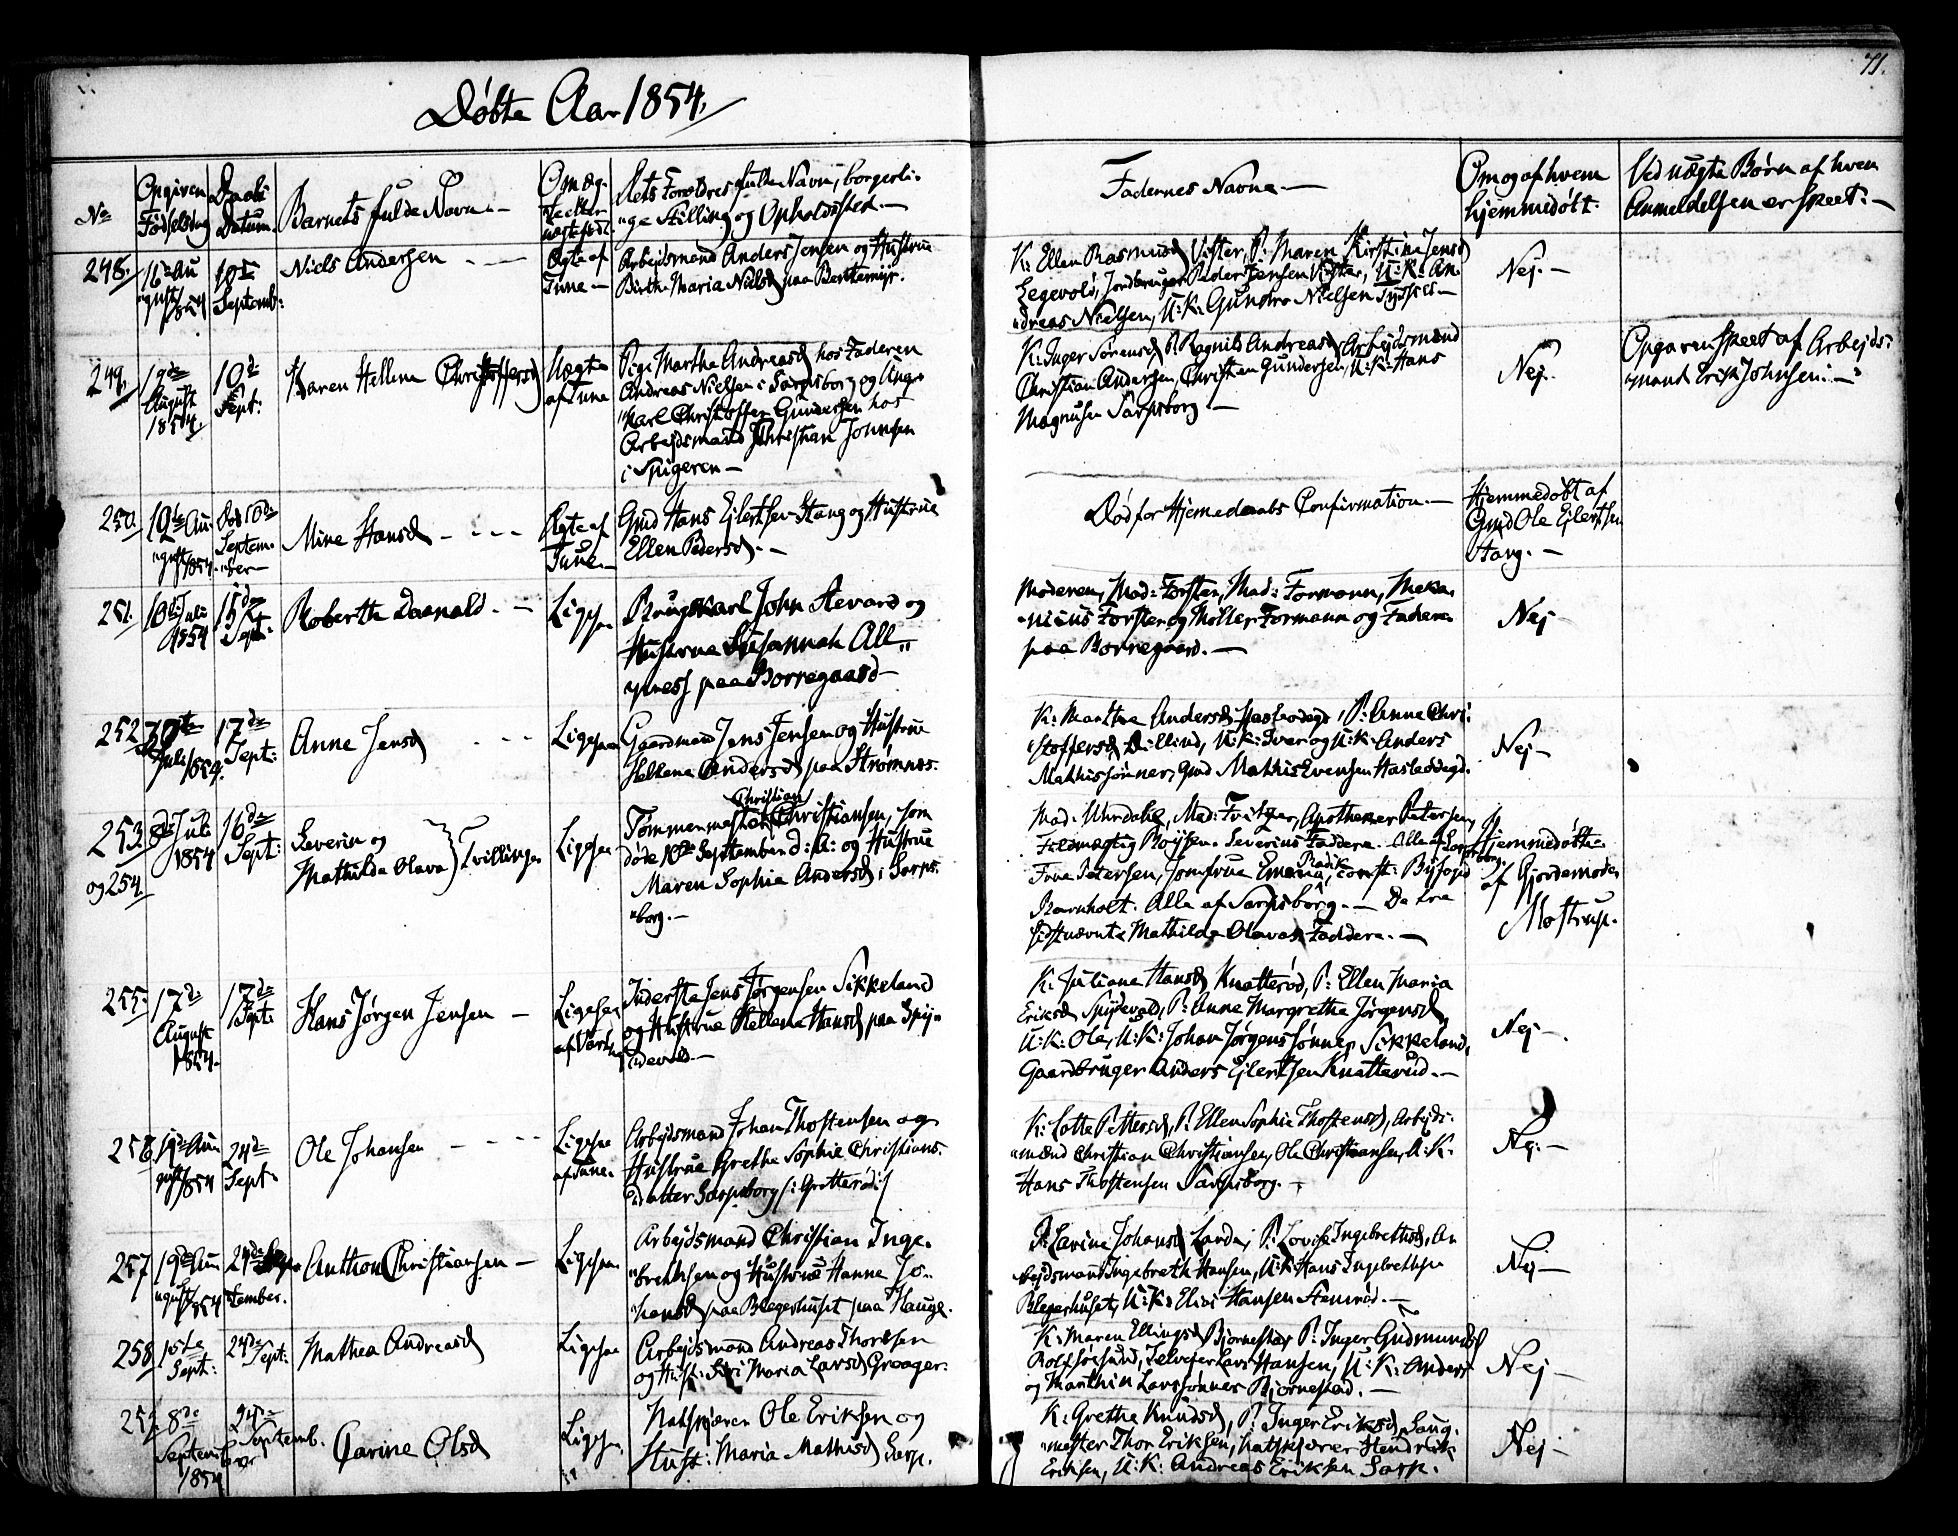 71.
Døbte Aar 1854.
No
Opgiven Fødselsdag
Daabs Datum.
Barnets fulde Navn. —
Om Æg-
te eller
uægte født.
Rets Forældres fulde Navn, borgerli-
"ge Stilling og Opholdssted. —
Faddernes Navne —
Om og af hvem
hjemmedøbt.
Ved uægte Børn af hvem
Anmeldelsen er skeet: —
248.
16de Au
"gust
1854
10de
Septemb:
Niels Andersen
Ægte af
Tune —
Arbejdsmand Anders Jensen og Hustrue
Birthe Maria Nielsd paa
K: Ellen Rasmusd Vister, P: Maren Kirstine Jensd
Jordbruger Peder Jensen Vister, U: K: An-
"dreas Nielsen, U: K: Gundro Nielsen
Nej. —
249.
19de
August
1854.
10de
Sept:
Karen Hellene Christoffersd
Uægte
af Tune
Pige Marthe Andreasd hos Faderen
Andreas Nielsen i Sarpsborg og Ungk
Karl Christoffer Gundersen hos
Arbejdsmand Christian Jonnsen
i Spigeren —
K: Inger Sørensd P: Ragnild Andreasd Arbejdsmænd
Christian Andersen, Christian Gundersen, U: K: Hans
Magnusen Sarpsborg —
Nej.
Opgaven skeet af Arbejds-
"mand Erik Johnsen: —
250.
19de Au-
"gust 1854.
Død 10de
Septem-
"ber —
Mine Hansd
Ægte af
Tune. —
Gmd Hans Ejlertsen Stang og Hustrue
Ellen Pedersd. —
Død før Hjemmedaabs Confirmation. —
Hjemmedøbt af
Gmd Ole Ejlertsen
Stang. —
251.
10de Juli
1854
15de
Sept:
Roberth Daanald
Ligesaa
Brugskarl John Stevard og
Hustrue Susannah All-
"ness paa Borregaard —
Moderen, Mad: Forsten, Mad: Formann, Meka-
"nicus Forster og Møller Formann og Faderen
paa Borregaard. —
Nej
252
30te
Juli 1854.
17de
Sept:
Anne Jensd
Ligesaa
Gaardmand Jens Jensen og Hustrue
Hellene Andersd paa Strømnes.
K: Marthe Andersd Hasleodegd, P: Anne Chri-
"stoffersd U: K: Iver og U: K: Anders
Mathissønner, Gmd Mathis Evensen Hasleødegd.
Nej —
253.
og 254.
8de Juli
1854
16de
Sept:
Severin og
Mathilda Olava } Tvillinger
Ligesaa
Christian
Tømmermester Christiansen, som
døde 10de September d: A: og Hustrue
Maren Sophie Andersd i Sarps-
"borg. —
Mad: Mad: Fritzner, Apotheker Petersen,
Fuldmægtig Boyesen Severins Faddere. Alle af Sarpsborg.
Frue Petersen, Jomfrue Radik, const: Byfoged
Barnholt. Alle af Sarpsborg. — De tre
sidstnævnte Mathilde Olavas Faddere. —
Hjemmedøbte
af Gjordemoder
Mostrup.
255.
17de
August
1854.
17de
Sept:
Hans Jørgen Jensen —
Ligesaa
af Varteig
Inderste Jens Jørgensen Sikkeland
og Hustrue Hellene Hansd paa Spy-
"devold. —
K: Juliane Hansd Knatterød, P: Ellen Maria
Eriksd Spydevold, P: Anne Margrethe Jørgensd
U: K: Ole, U: K: Johan Jørgenssønner Sikkeland,
Gaardbruger Anders Ejlertsen Knatterud. —
Nej —
256.
19de Au-
gust 1854
24de
Sept.
Ole Johansen
Ligesaa
af Tune.
Arbejdsmand Johan Thostensen og
Hustrue Grethe Sophie Christians-
"datter Sarpsborg /: Grotterød :/
K: Lotte Pettersd, P: Ellen Sophie Thostensd, Arbejds-
"mænd Christian Christiansen, Ole Christiansen, U: K:
Hans Thostensen Sarpsborg. —
Nej: —
257
19de Au-
"gust 1854
24de Sep
"tember.
Anthon Christiansen —
Ligesaa
Arbejdsmand Christian Inge-
"brethsen og Hustrue Hanne Jo-
"hansd paa Blegerhuset paa Hauge.
P: Larine Johansd Lande, P: Lovise Ingebrethsd, Ar-
bejdsmand Ingebreth Hansen, U: K: Hans Ingebrethsen
Blegerhuset, U: K: Elias Hansen Stenrød. —
Nej —
258
15te
Sept:
24de Sept:
Mathea Andreasd
Ligesaa
Arbejdsmand Andreas Thoresen
og Hust: Siri Maria Larsd Greager.
K: Maren Ellingsd Bjørnestad, P: Inger Gudmundsd
Rolfsøesund, Selvejer Lars Hansen, U: K: Anders
og Marthin Larssønner Bjørnestad. —
Nej —
259
8de
Septem-
ber
1854
24de
Septemb.
Carine Olsd
Ligesaa
Natskjærer Ole Eriksen og
Hust: Maria Mathisd Sarp.
K: Grethe Knudsd, P: Inger Eriksd, Saug-
"mester Thor Eriksen, Natskjærer Hendrik
Eriksen, U: K: Andreas Eriksen Sarp.
Nej —